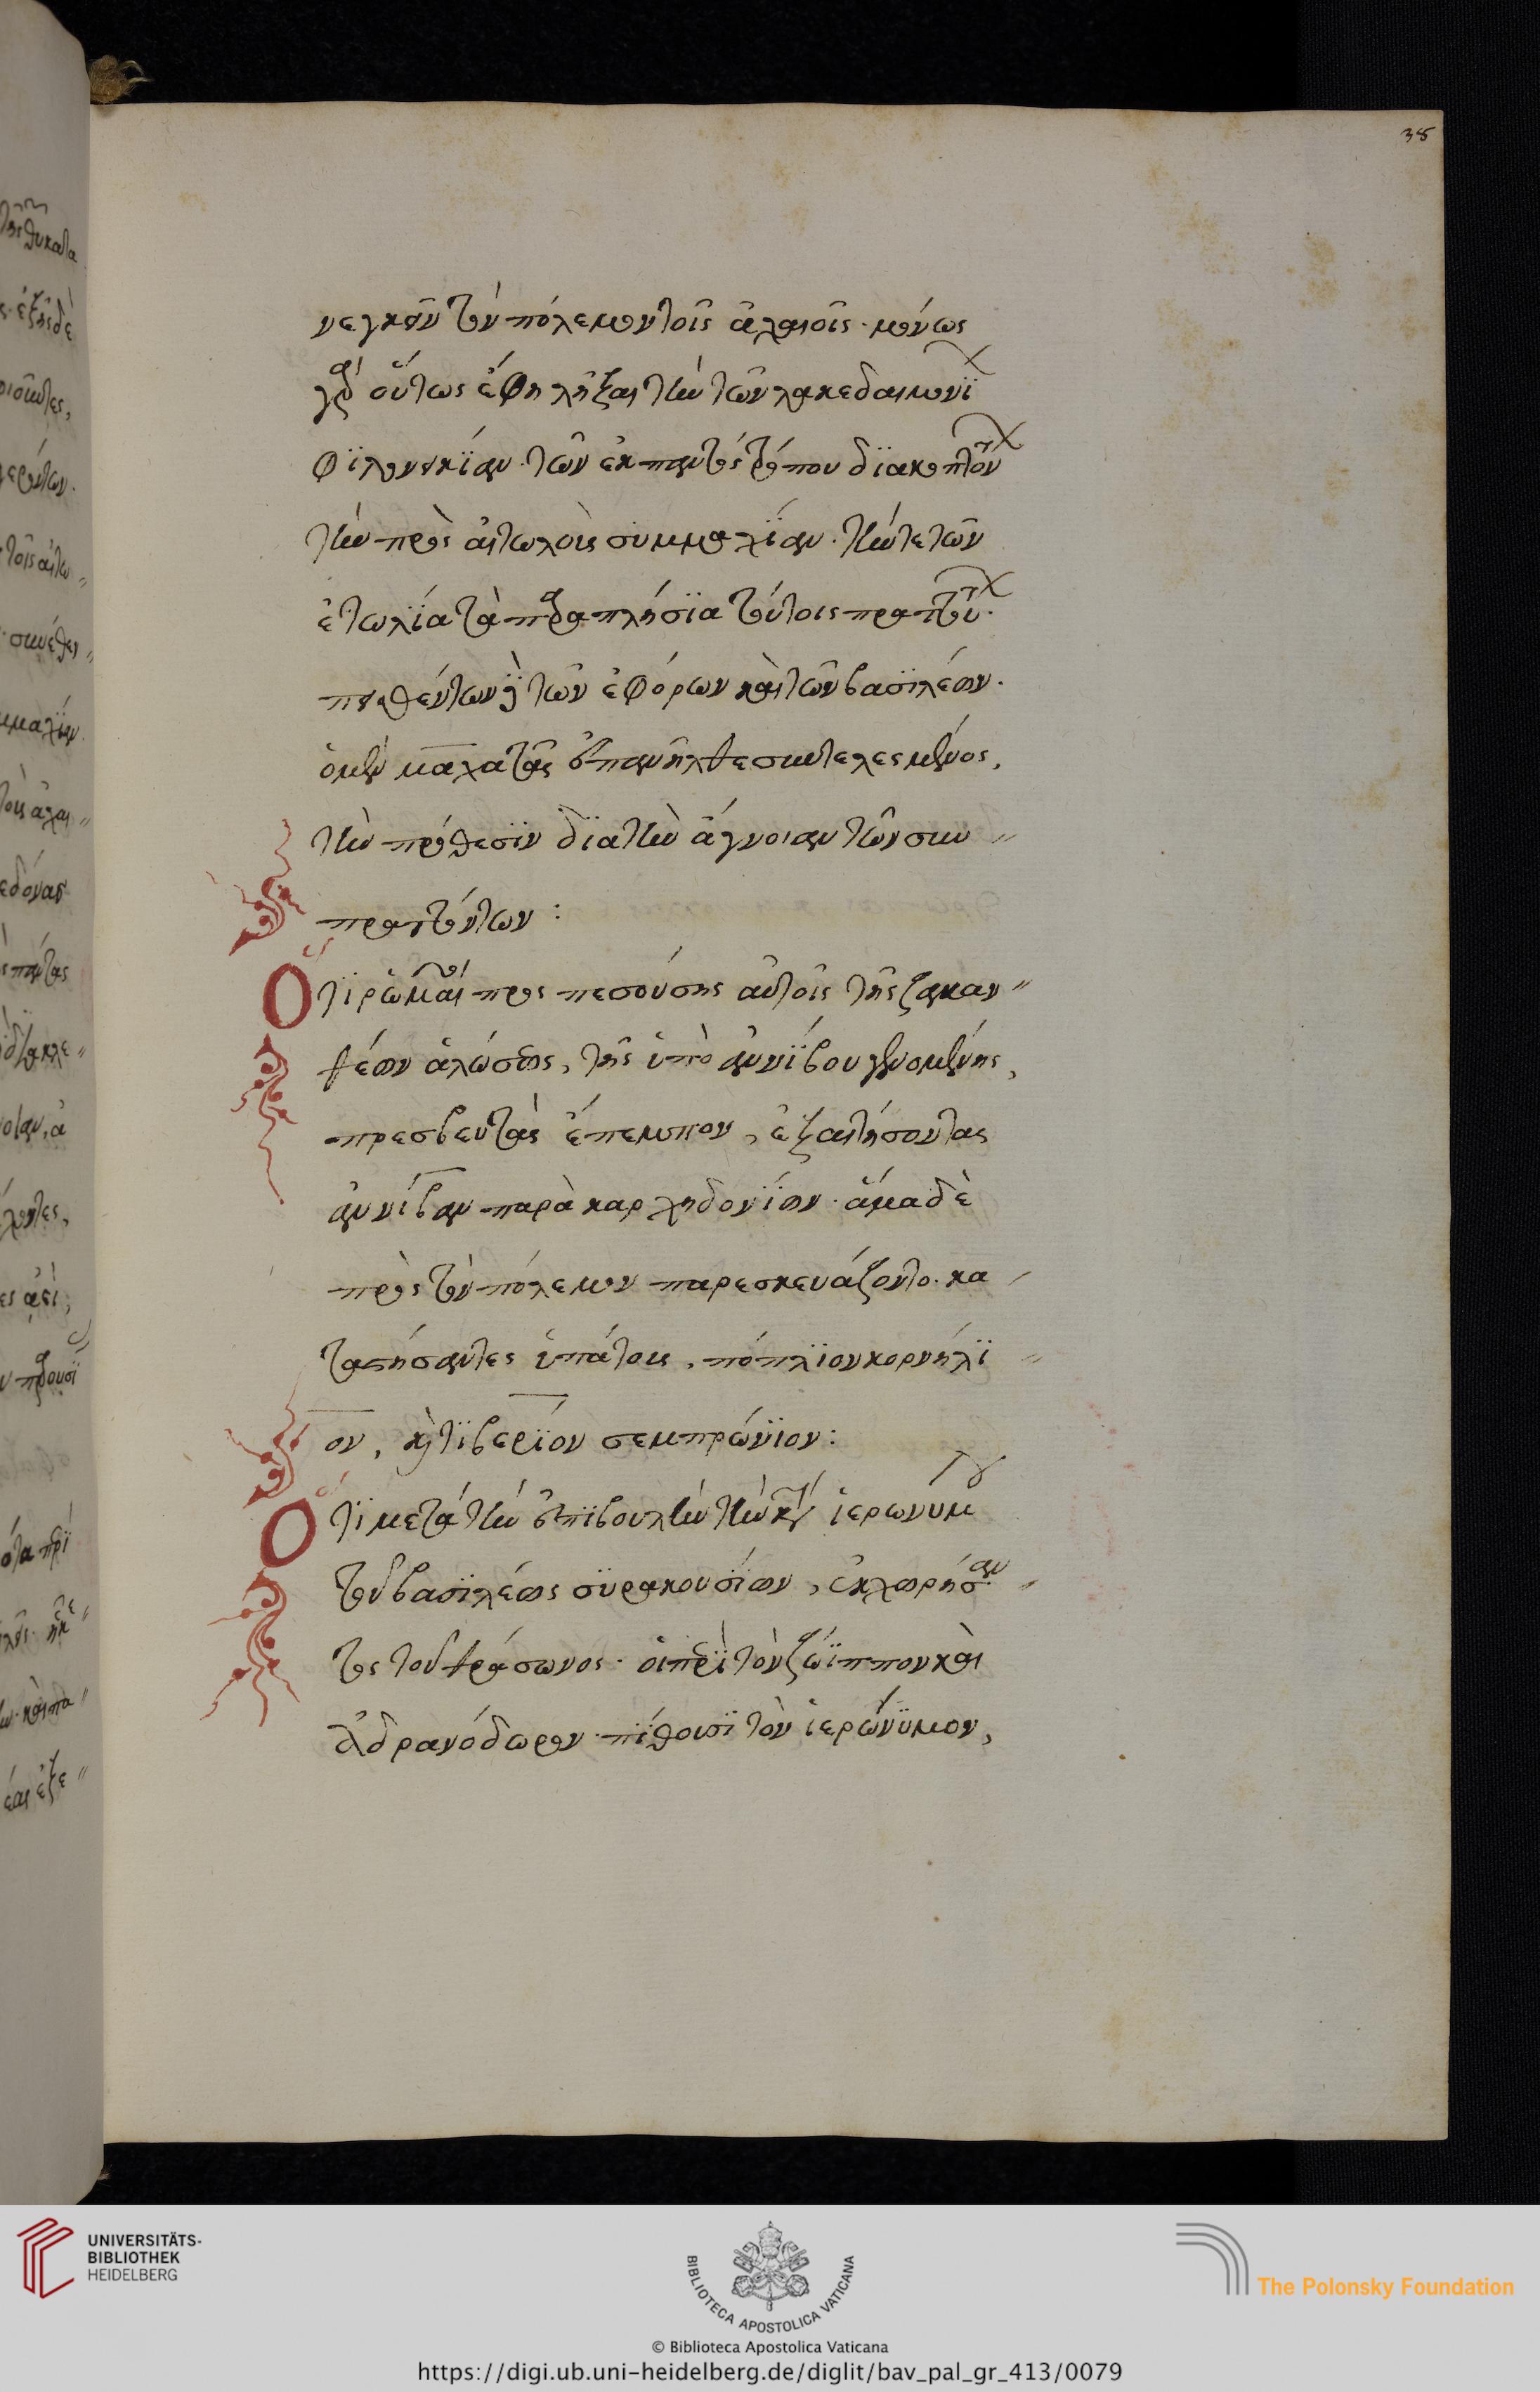 38
νεγκεῖν τὸν πόλεμον τοῖς ἀχαιοῖς. μόνως
γὰρ οὕτως ἔφη λῆξαι τὴν τῶν λακεδαιμονί
φϊλονεικΐαν. τῶν ἐκ παντός τρόπου δϊακοπτόν
τὴν πρὸς αἰτωλοὺς συμμαχΐαν. τήν τε τῶν
ἐτωλΐα τὰ παραπλήσϊα τούτοις πραττ
πεισθέντων δὲ τῶν ἐφόρων καὶ τῶν βασϊλέων.
ὁ μὲν μαχατᾶς ἐπανῆλθε συντελεσμένος,
τὴν πρόθεσϊν δϊα τὴν ἄγνοιαν τῶν συμ
πραττόντων:
Ὅτϊ ῥωμαῖοι προσπεσούσης αὐτοῖς τῆς ζακαν
θέων ἁλώσεως, τῆς ὑπὸ ἀννΐβου γενομένης,
πρεσβευτὰς ἔπεμπον, ἐξαιτήσοντας
ἀννίβαν παρὰ καρχηδονΐων. ἅμα δὲ
πρὸς τὸν πόλεμον παρεσκευάζοντο. κα
ταστήσαντες ὑπάτους, πόπλϊον κορνήλϊ
ον, καὶ τϊβερΐον σεμπρώνϊον:
Ὅτϊ μετά τὴν ἐπϊβουλὴν τὴν κατὰ ἱερωνυμ
τοῦ βασϊλέως σϋρακουσΐων, ἐκχωρήσαν
τος τοῦ θράσωνος. οἱ περὶ τὸν ζώϊππον καὶ
ἀδρανόδωρον πΐθουσϊ τὸν ἱερώνϋμον,
UNIVERSITÄTS-
BIBLIOTHEK
HEIDELBERG
BIBLIOTECA APOSTOLICA VATICANA
The Polonsky Foundation
© Biblioteca Apostolica Vaticana
https://digi.ub.uni-heidelberg.de/diglit/bav_pal_gr_413/0079